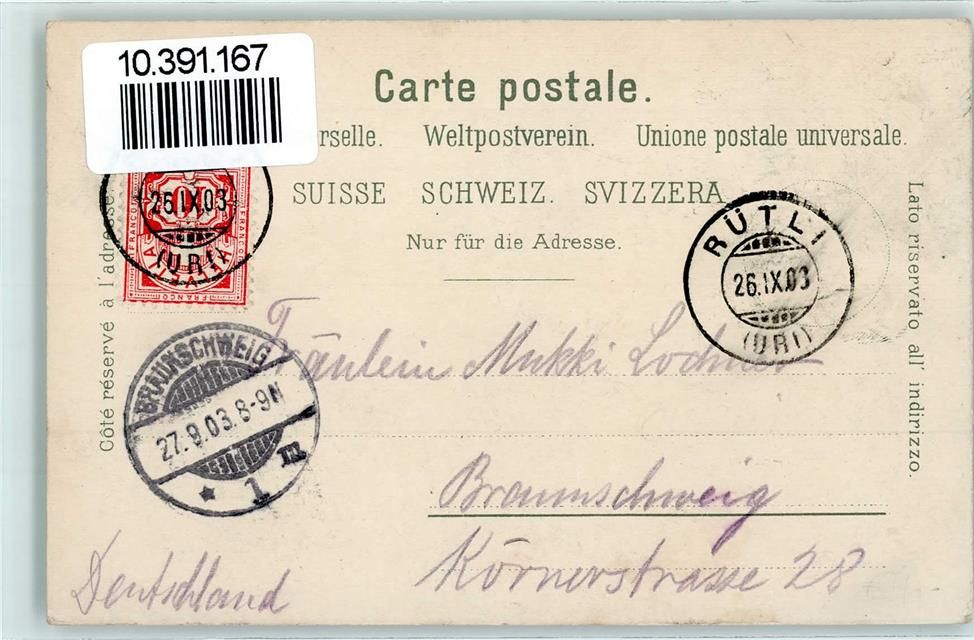 10.391.167
Carte postale.
rselle. Weltpostverein. Unione postale universale.
SUISSE SCHWEIZ. SVIZZERA
Nur für die Adresse.
Côté réservé à l'adresse.
Lato riservato all' indirizzo.
26.IX.03
(URI)
FRANCO
10
HELVETIA
FRANCO
FRANCO
RÜTLI
26.IX.03
(URI)
BRAUNSCHWEIG
27.9.03.8-9N
* 1 III
Fräulein Mukki Lochner
Braunschweig
Körnerstrasse 28
Deutschland